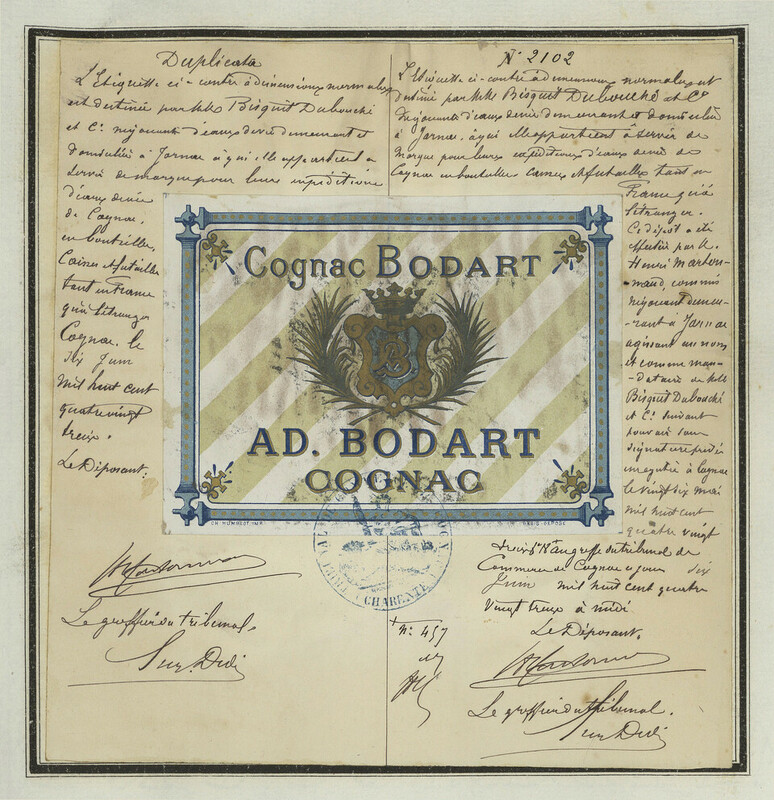 Duplicata
L'Etiquette ci-contre à dimensions normales
est destinée par MM. Bisquit Dubouché
et Cie négociants d'eaux de vie demeurant et
domiciliés à Jarnac à qui elle appartient à
servir de marque pour leurs expéditions
d'eaux de vie
de Cognac.
en bouteilles,
Caisses et futailles
tant en France
qu'à l'étranger
Cognac. le
dix Juin
mil huit cent
quatre vingt
treize.
Le Déposant:
Le greffier du tribunal.
N° 2102
L'Etiquette ci-contre à dimensions normales est
destinée par MM. Bisquit Dubouché et Cie
négociants d'eaux de vie demeurant et domiciliés
à Jarnac. à qui elle appartient à servir de
marque pour leurs expéditions d'eaux de vie de
Cognac en bouteilles caisses et futailles tant en
France qu'à
l'étranger.
Ce dépôt a été
effectué par M.
Henri Marton-
naud, commis
négociant demeu-
-rant à Jarnac
agissant au nom
et comme man-
-dataire de MM.
Bisquit Dubouché
et Cie suivant
pouvoir sous
signature privée
enregistré à Cognac
le vingt six mai
mil huit cent
quatre vingt
treize au greffe du tribunal de
Commerce de Cognac ce jour dix
Juin mil huit cent quatre
vingt treize à midi
Le Déposant.
Le greffier du tribunal.
N° 457
Cognac BODART
AD. BODART
COGNAC
CH. HUMBLOT IMP.
DÉPOSÉ
CHARENTE